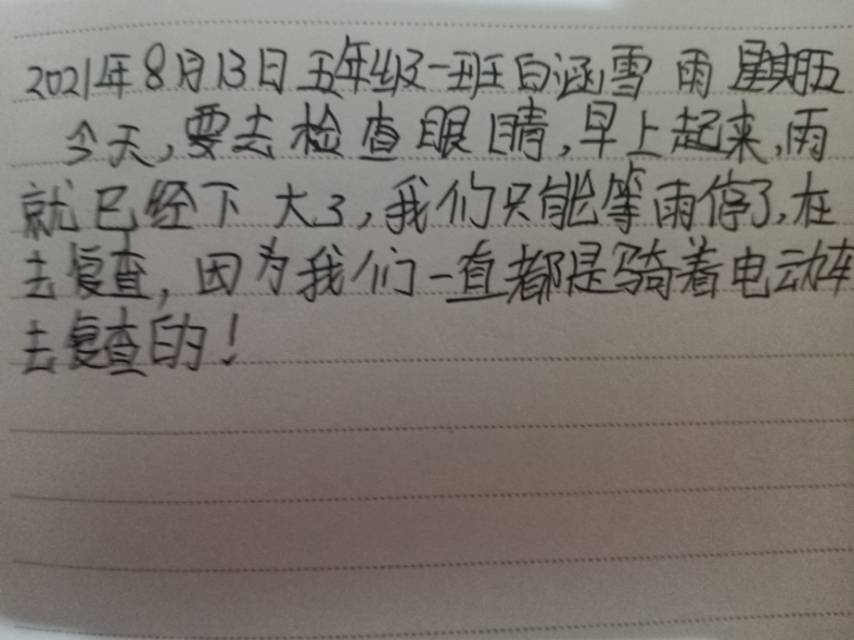 2021年8月13日 五年级一班白涵雪 雨 星期五
今天,要去检查眼睛,早上起来,雨
就已经下大了,我们只能等雨停了,在
去复查,因为我们一直都是骑着电动车
去复查的!